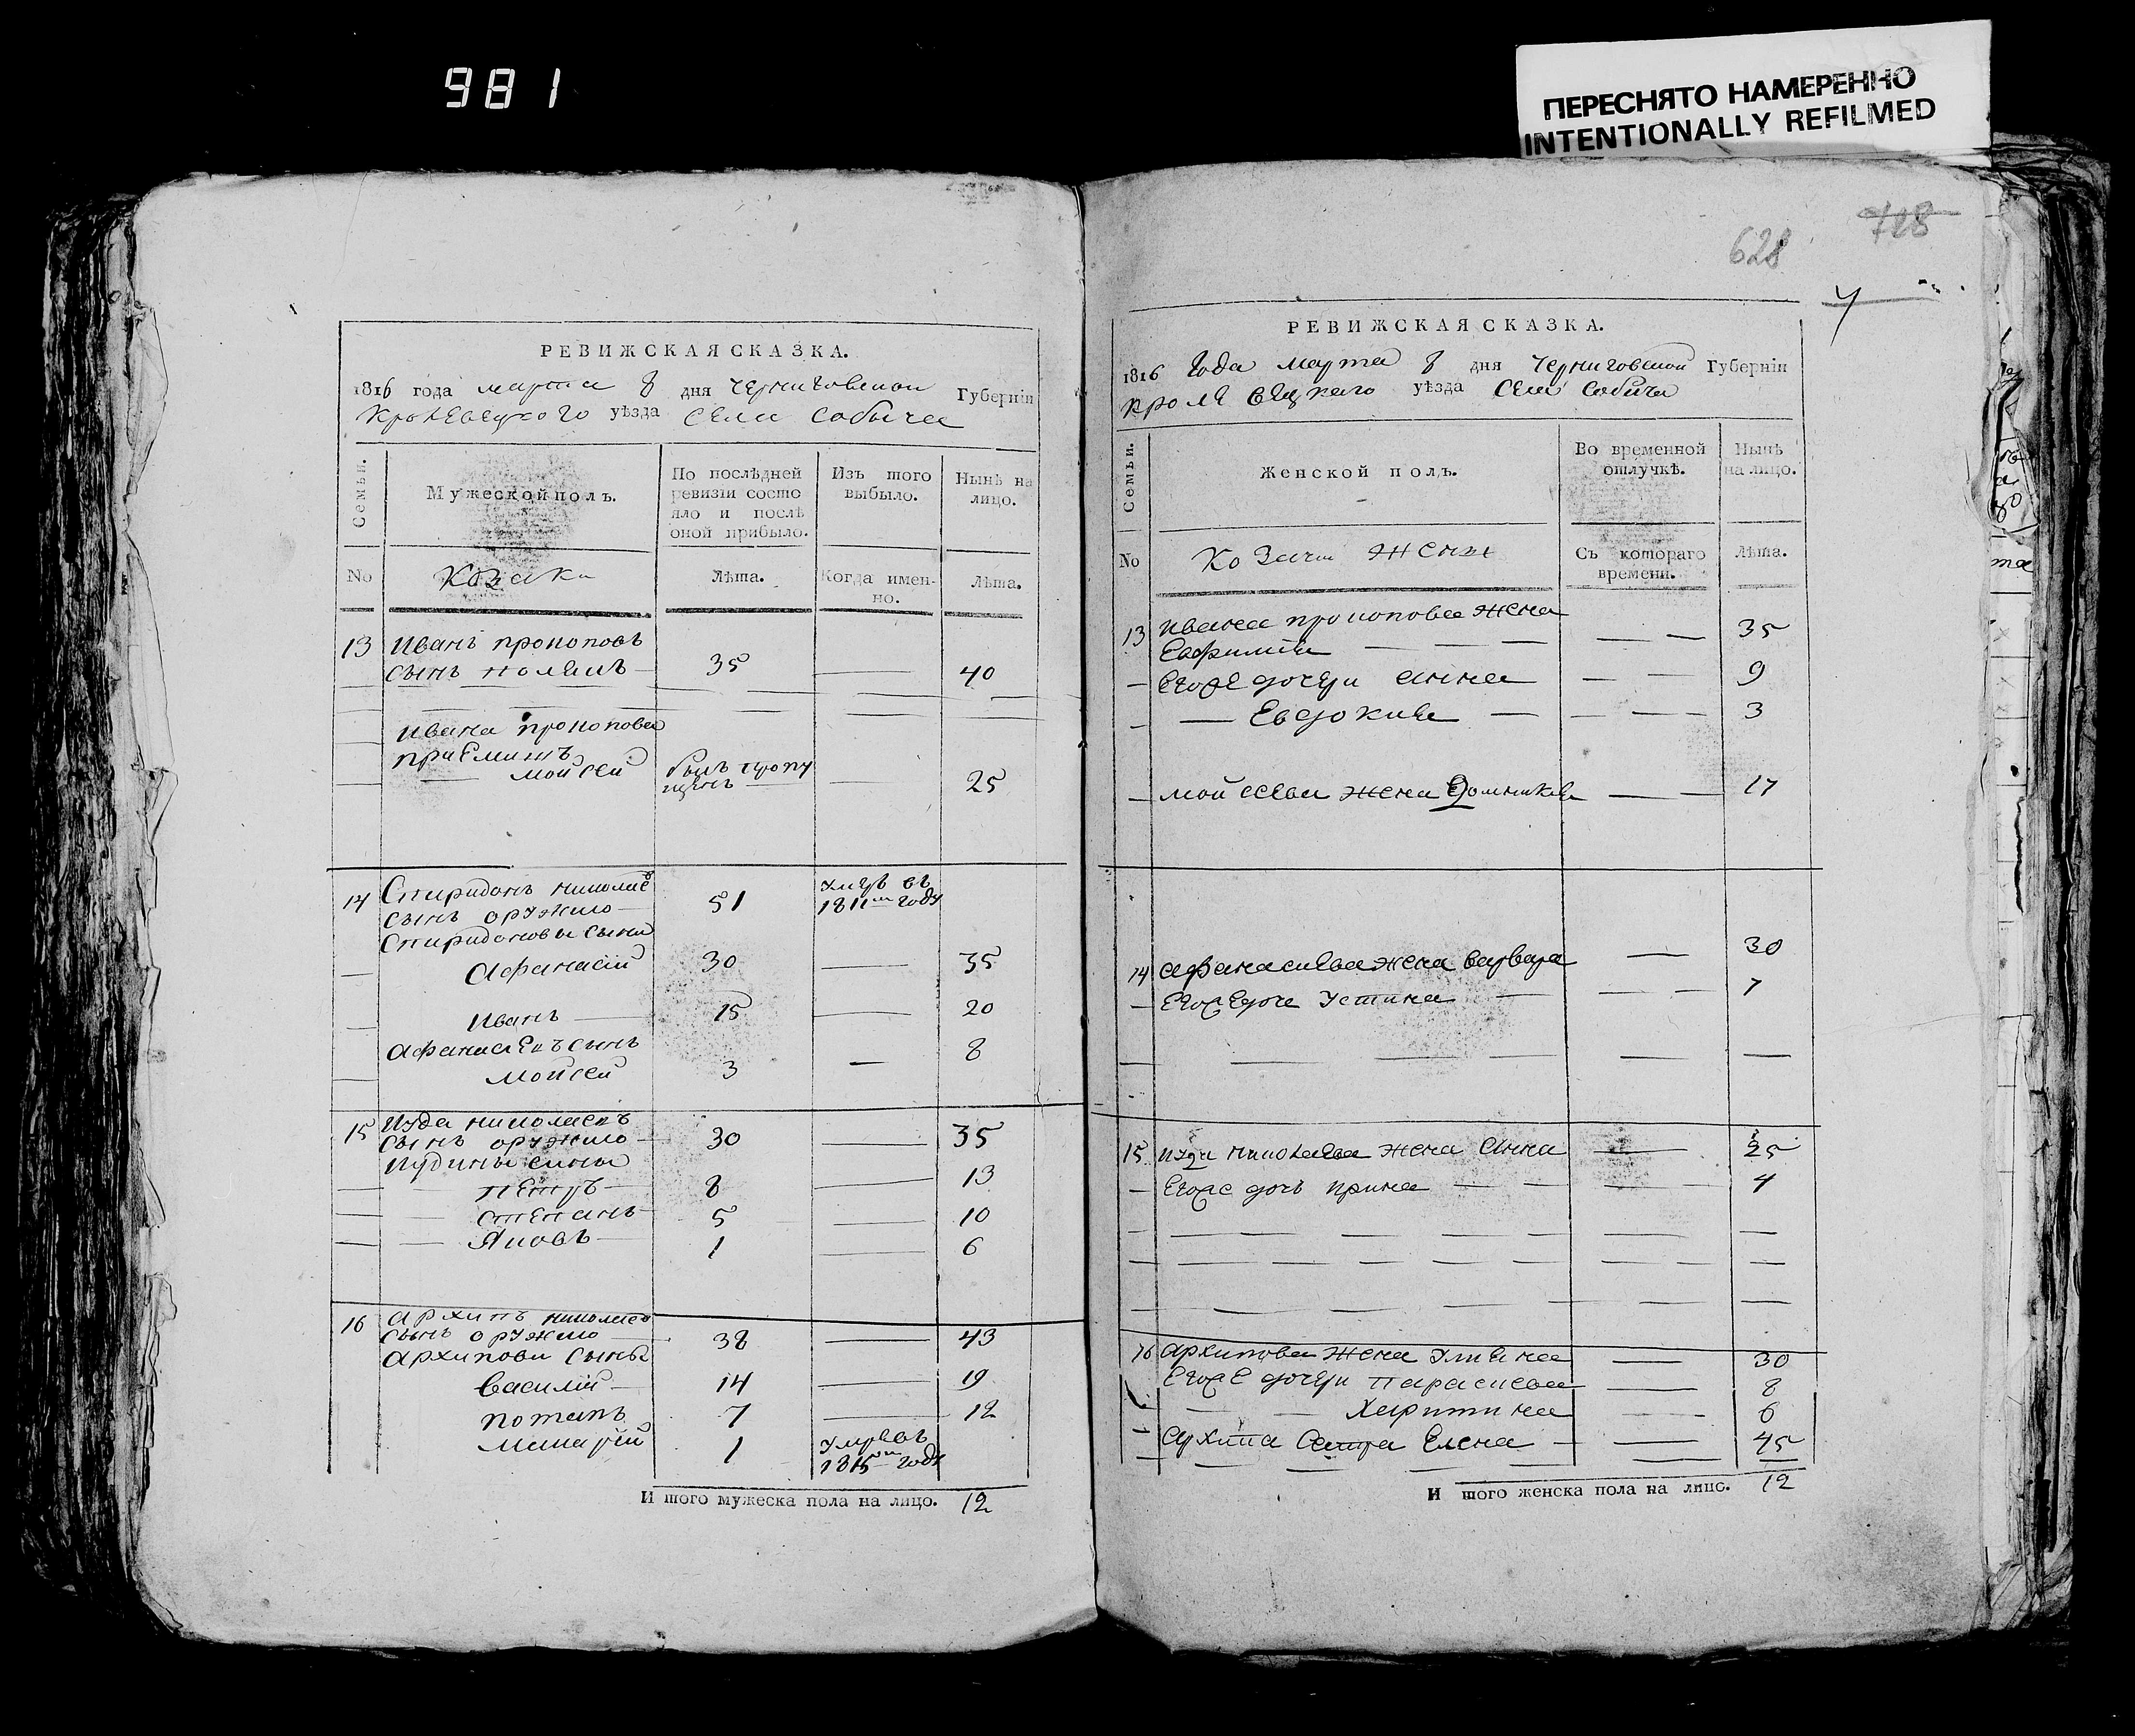 981
ПЕРЕСНЯТО НАМЕРЕННО
INTENTIONALLY REFILMED
728
628
РЕВИЖСКАЯ СКАЗКА.
1816 года марта 8 дня Черниговской Губернїи
Кролевецкого уѣзда села Собыча
Семьи.
Мужеской полъ.
По послѣдней ревизїи состояло и послѣ оной прибыло.
Изъ того выбыло.
Нынѣ на лицо.
No
козаки
Лѣта.
Когда имен-но.
Лѣта.
13 Иванъ прокоповъ
сынъ 35 — 40
ивана прокопова
приемишъ
моисей былъ пропу
щенъ — 25
14 Спиридонъ николаевъ
сынъ оружко 51 умръ въ 1811м году
Спиридоновы сыни
Афанасїй 30 — 35
Иванъ 15 — 20
Афанасіевъ сынъ
Мойсей 3 — 8
15 Иуда николаевъ
сынъ оружко 30 — 35
Иудины сины
петръ 8 — 13
степанъ 5 — 10
Яковъ 1 — 6
16 Архипъ николаевъ
сынъ оружко 38 — 43
Архипови сыны
василїй 14 — 19
потапъ 7 — 12
макарїй 1 умревъ 1815м году
И того мужеска пола на лицо. 12
РЕВИЖСКАЯ СКАЗКА.
1816 года марта 8 дня Черниговской Губернїи
кролевецкаго уѣзда села Собича
Семьи.
Женской полъ.
Во временной отлучкѣ.
Нынѣ на лицо.
No
козачи жени
Съ котораго времени.
Лѣта.
13 ивана прокопова жена
Евфимия — 35
Его дочери анна — 9
Евдокия — 3
мойсеева жена Домникия — 17
14 афанасиева жена варвара — 30
Его дочь Устина — 7
15 иуди николаева жена анна — 25
Его дочь ирина — 4
16 архипова жена улияна — 30
Его дочери параскева — 8
Харитина — 6
архипа сестра Елена — 45
И того женска пола на лицо. 12